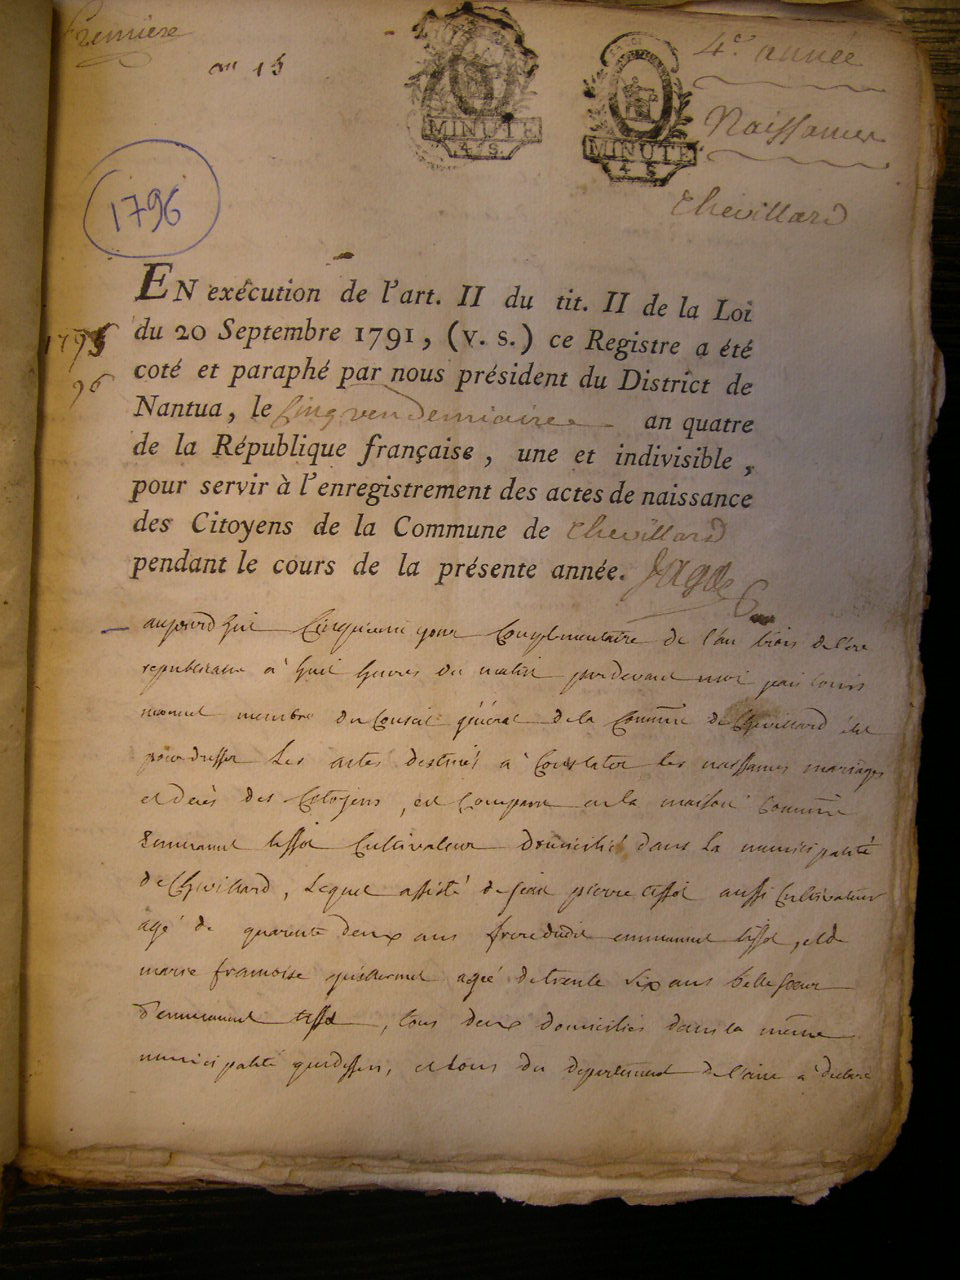 Premiere
an 15
MINUTE
4 S.
MINUTE
4 S
4e. année
Naissances
Chevillard
1796
1795
96
EN exécution de l'art. II du tit. II de la Loi
du 20 Septembre 1791, (v. s.) ce Registre a été
coté et paraphé par nous président du District de
Nantua, le Cinq vendemiaire an quatre
de la République française, une et indivisible,
pour servir à l'enregistrement des actes de naissance
des Citoyens de la Commune de Chevillard
pendant le cours de la présente année.
aujourd'huit Cinquieme jour Complementaire de l'an trois de l'ere
republicaine à huit heures du matin pardevant moi jean louis
membre du Conseil général de la Commune de Chevillard élu
pour dresser Les actes destinés à Constater les naissances mariages
et decès des Citoyens, est Comparu en la maison Commune
Emmanuel tissot Cultivateur domicilié dans La municipalité
de Chevillard, Lequel assisté de jean pierre tissot aussi Cultivateur
agé de quarente deux ans frere dudit emmanuel tissot, et de
marie francoise agée de trente six ans belle soeur
d'emmanuel tissot, tous deux domiciliés dans la même
municipalité que dessus, et tous du departement de l'ain a declaré